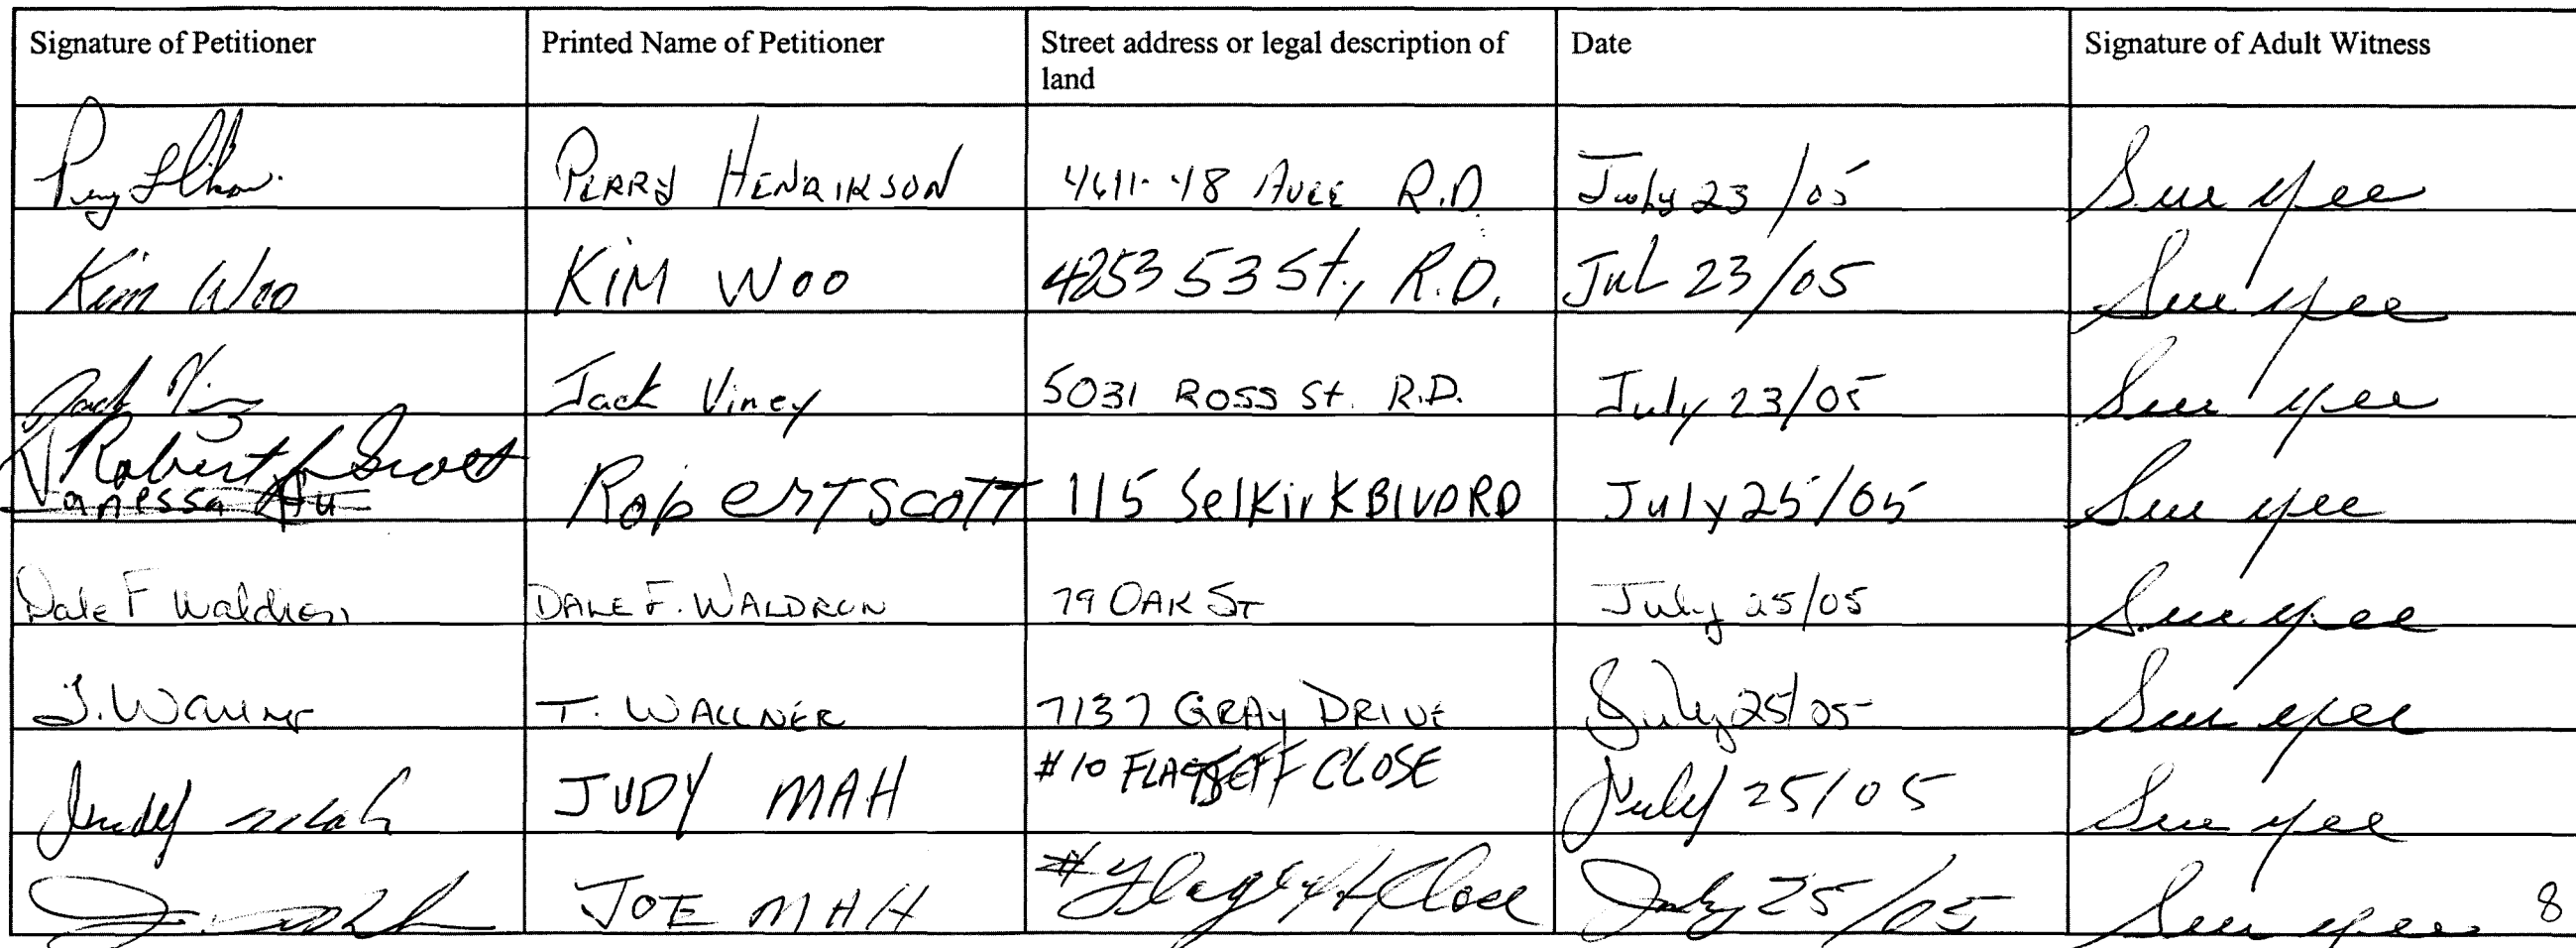 Signature of Petitioner Printed Name of Petitioner Street address or legal description of land Date Signature of Adult Witness
PERRY HENRIKSON 4611-48 AVEE R.D. July 23/05 Sue Yee
Kim Woo KIM WOO 4253 53 St., R.D. JUL 23/05 Sue Yee
Jack Viney Jack Viney 5031 ROSS St. R.D. July 23/05 Sue Yee
Robert Scott RobERT SCOTT 115 SelKirK BlVD RD July 25/05 Sue Yee
Vanessa
Dale F Waldron DALE F. WALDRON 79 OAK ST July 25/05 Sue Yee
T. Wallner T. WALLNER 7137 GRAY DRIVE July 25/05 Sue Yee
Judy Mah JUDY MAH #10 CLOSE July 25/05 Sue Yee
JOE MAH # Close July 25/05 Sue Yee
8